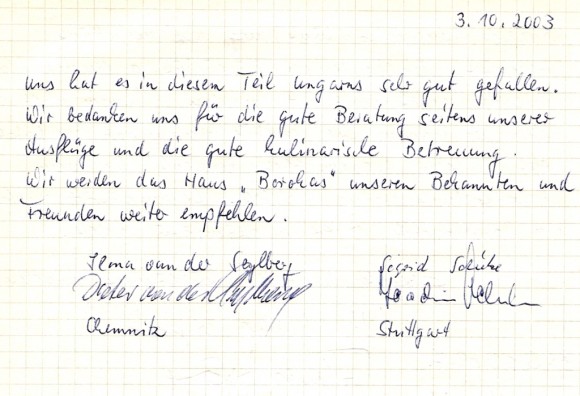 3.10.2003
uns hat es in diesem Teil ungarns sehr gut gefallen.
Wir bedanken uns für die gute Beratung seitens unserer
Ausflüge und die gute kulinarische Betreuung.
Wir werden das Haus „Borohas" unseren Bekannten und
Freunden weiter empfehlen.
van der Sigrid
Dieter van der Joachim
Chemnitz Stuttgart